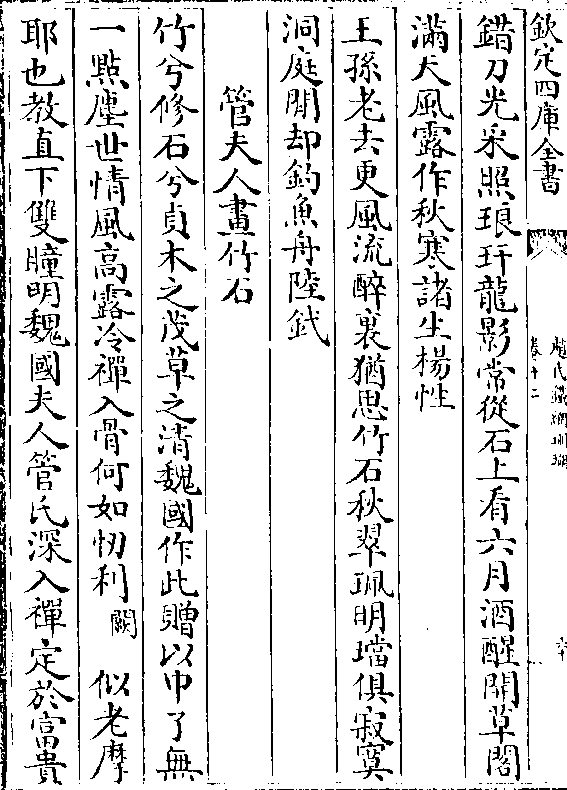 欽定四庫全書
趙氏鐵網珊瑚
卷十二
錯刀光采照琅玕龍影常從石上看六月酒醒開草閣
滿天風露作秋寒諸生楊性
王孫老去更風流醉裏猶思竹石秋翠珮明璫俱寂寞
洞庭閒却釣魚舟陸鉞
管夫人畫竹石
竹兮修石兮貞木之茂草之清魏國作此贈以中了無
一點塵世情風高露冷禪入骨何如忉利闕似老摩
耶也教直下雙瞳明魏國夫人管氏深入禪定於富貴